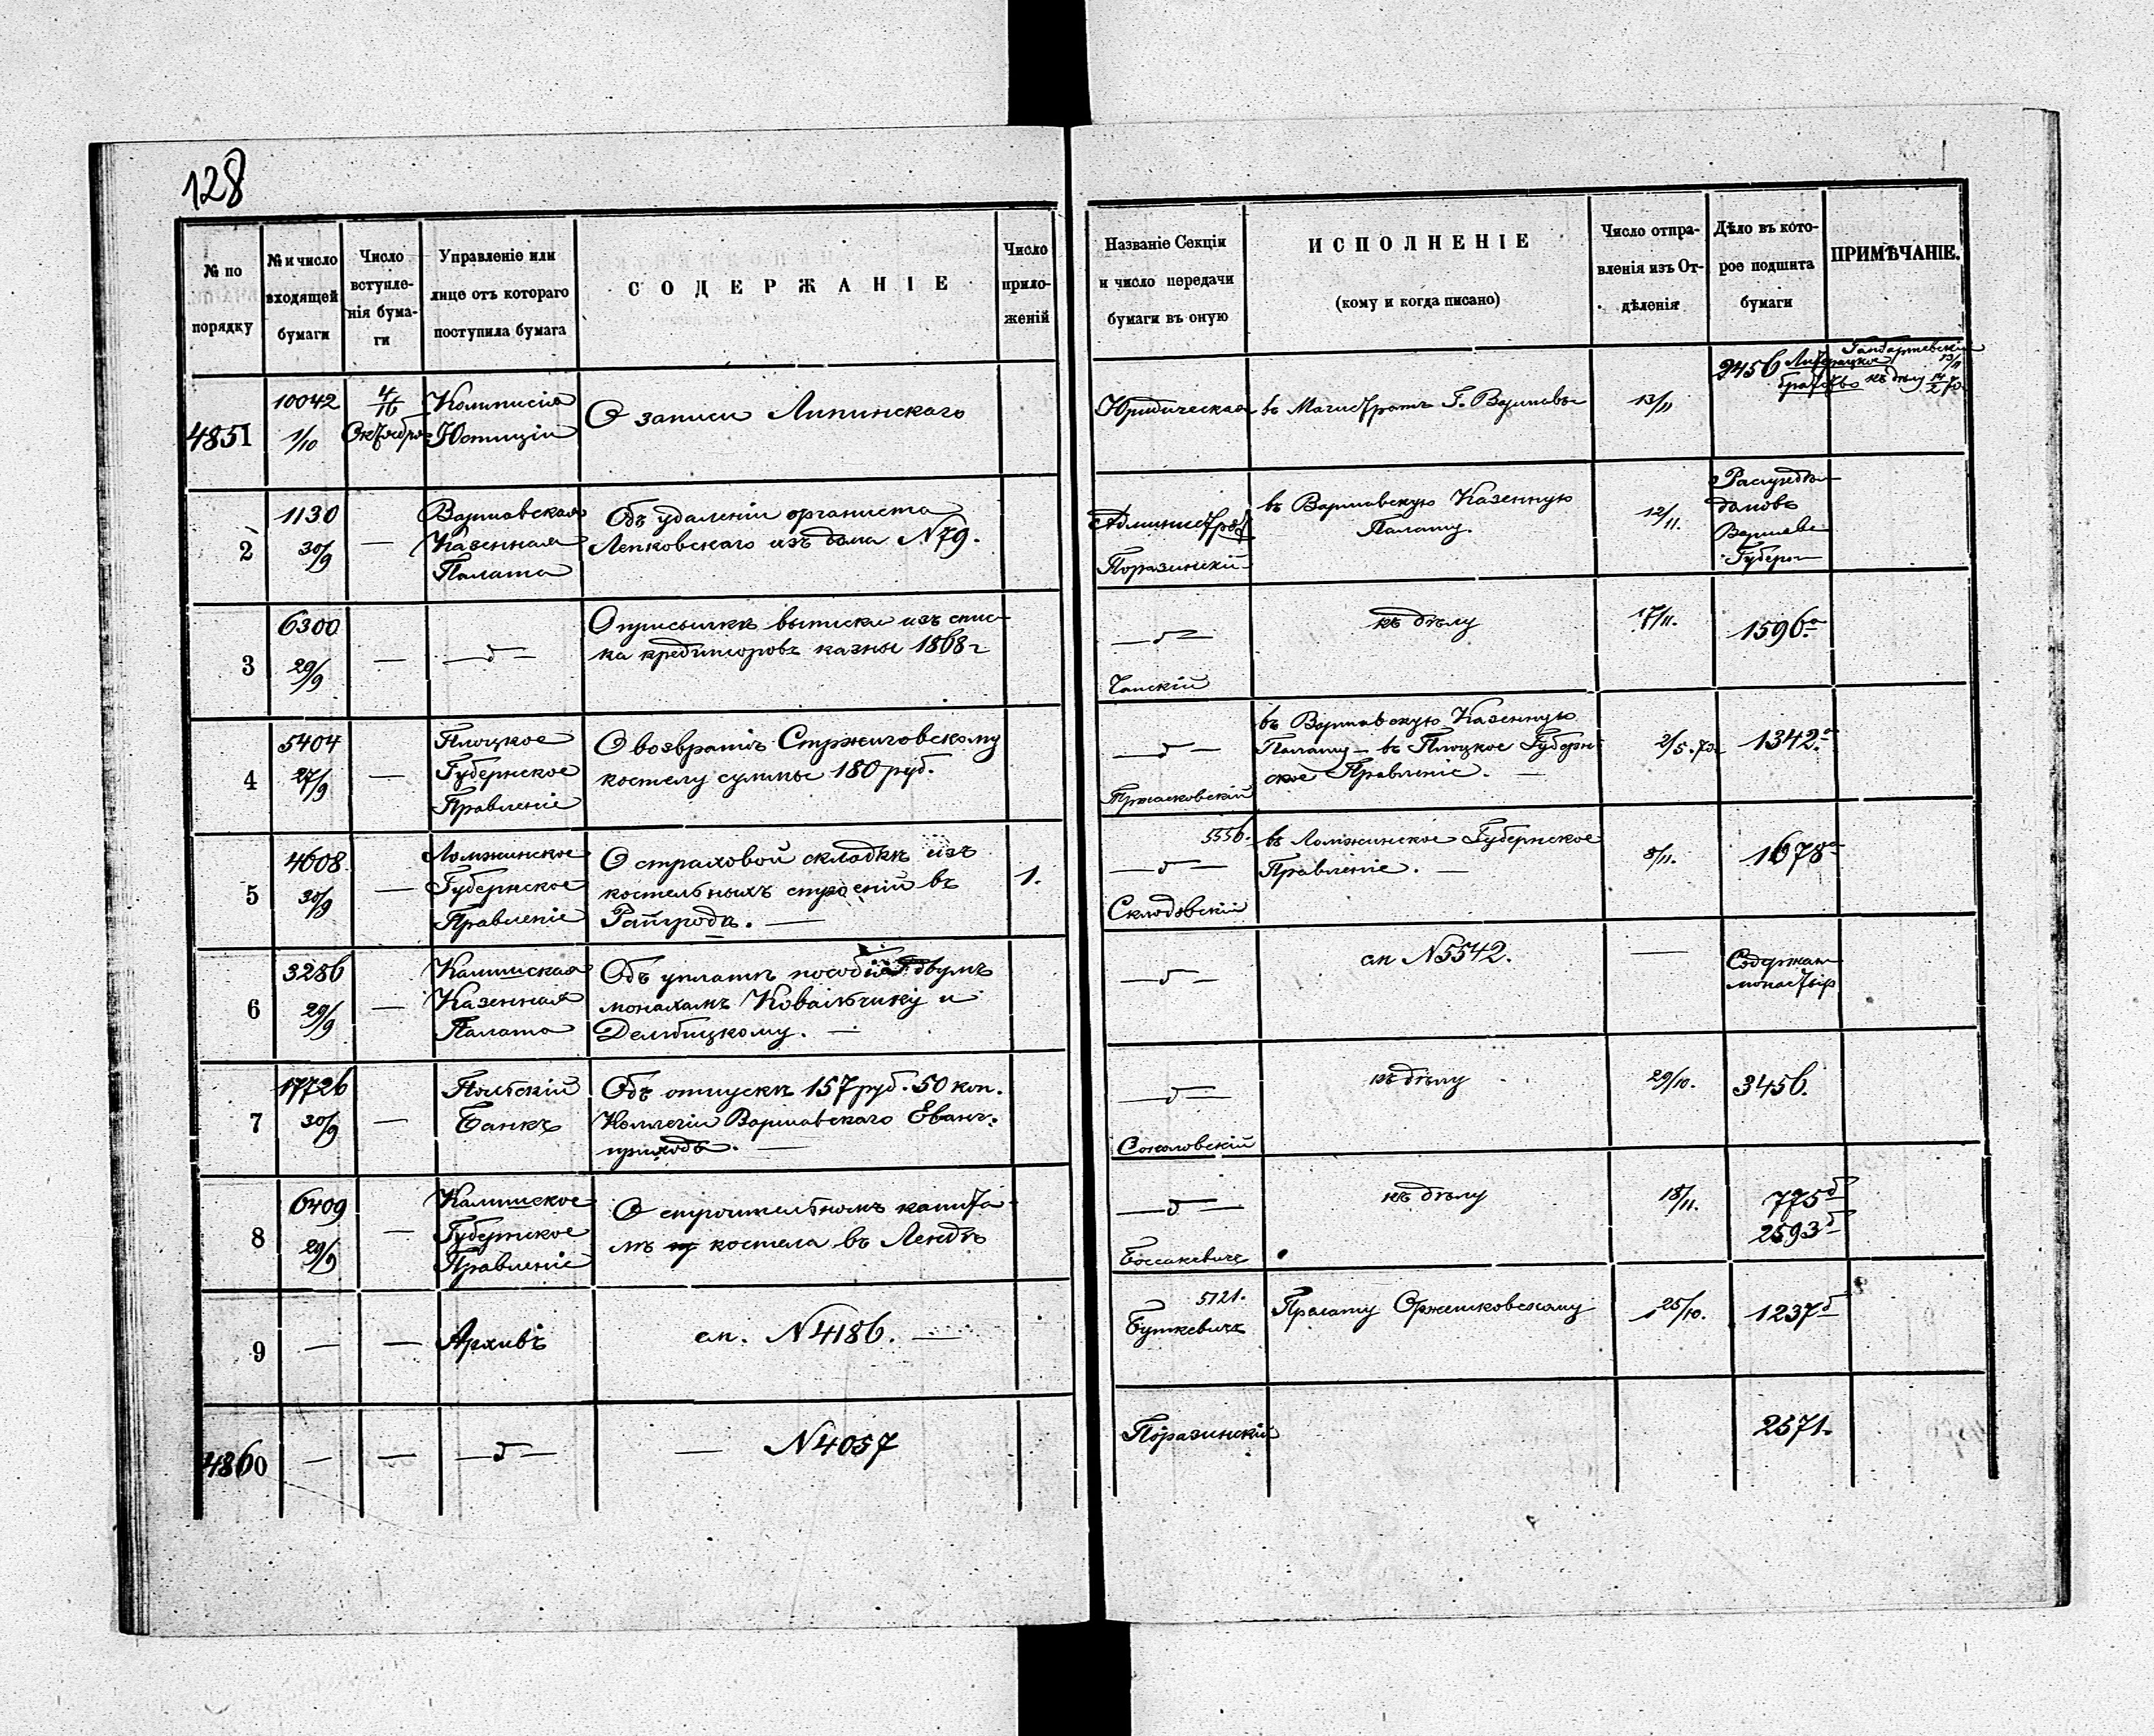 128
№ по порядку
№ и число входящей бумаги
Число вступле-
нія бума-
ги
Управленіе или
лице отъ котораго
поступила бумага
СОДЕРЖАНІЕ
Число
прило-
женій
Названіе Секціи
и число передачи
бумаги въ оную
ИСПОЛНЕНІЕ
(кому и когда писано)
Число отпра-
вленія изъ От-
дѣленія
Дѣло въ кото-
рое подшита
бумаги
ПРИМѢЧАНІЕ.
4851
10042
1/10
4/16
Октября
Коммисія
Юстиціи
О записи Липинскаго
Юридическая
въ Магистратъ Г. Варшавы
13/11
2456
братство къ дѣлу
2
1130
30/9
—
Варшавская
Казенная
Палата
Объ удаленіи органиста
Лепковскаго изъ дома №79.
Администр
Поразинскій
въ Варшавскую Казенную
Палату.
12/11.
домовъ
Варшавс
Губерн
3
6300
29/9
—
—„—
О присылкѣ выписки изъ спис-
ка кредиторовъ казны 1868 г
—„—
Чапскій
къ дѣлу
17/11.
1596а
4
5404
27/9
—
Плоцкое
Губернское
Правленіе
О возвратѣ Стржиговскому
костелу суммы 180 руб.
—„—
въ Варшавскую Казенную
Палату — въ Плоцкое Губерн-
ское Правленіе. —
2/5.73
1342а
5
4608
30/9
—
Ломжинское
Губернское
Правленіе
О страховой складкѣ изъ
костельныхъ строеній въ
Райгродѣ. —
1.
5556.
—„—
Склодовскій
въ Ломжинское Губернское
Правленіе. —
8/11.
1678а
6
3286
29/9
—
Калишская
Казенная
Палата
Объ уплатѣ пособія двумъ
монахамъ Ковальчику и
Дембицкому. —
—„—
ап №5542.
—
Содержан
монастыр
7
17726
30/9
—
Польскій
Банкъ
Объ отпускѣ 157 руб. 50 коп.
Коллегіи Варшавскаго Еванг.
прихода. —
—„—
Соколовскій
къ дѣлу
29/10.
3456.
8
6409
29/9
—
Калишское
Губернское
Правленіе
О строительномъ капита-
лѣ костела въ Лендѣ
—„—
Боссакевичъ
къ дѣлу
18/11.
775б
2593б
9
—
—
Архивъ
ап. №4186. —
5121.
Буткевичъ
Прелату Оржешковскому
25/10.
1237б
4860
—
—
—„—
— №4057
Поразинскій
2571.